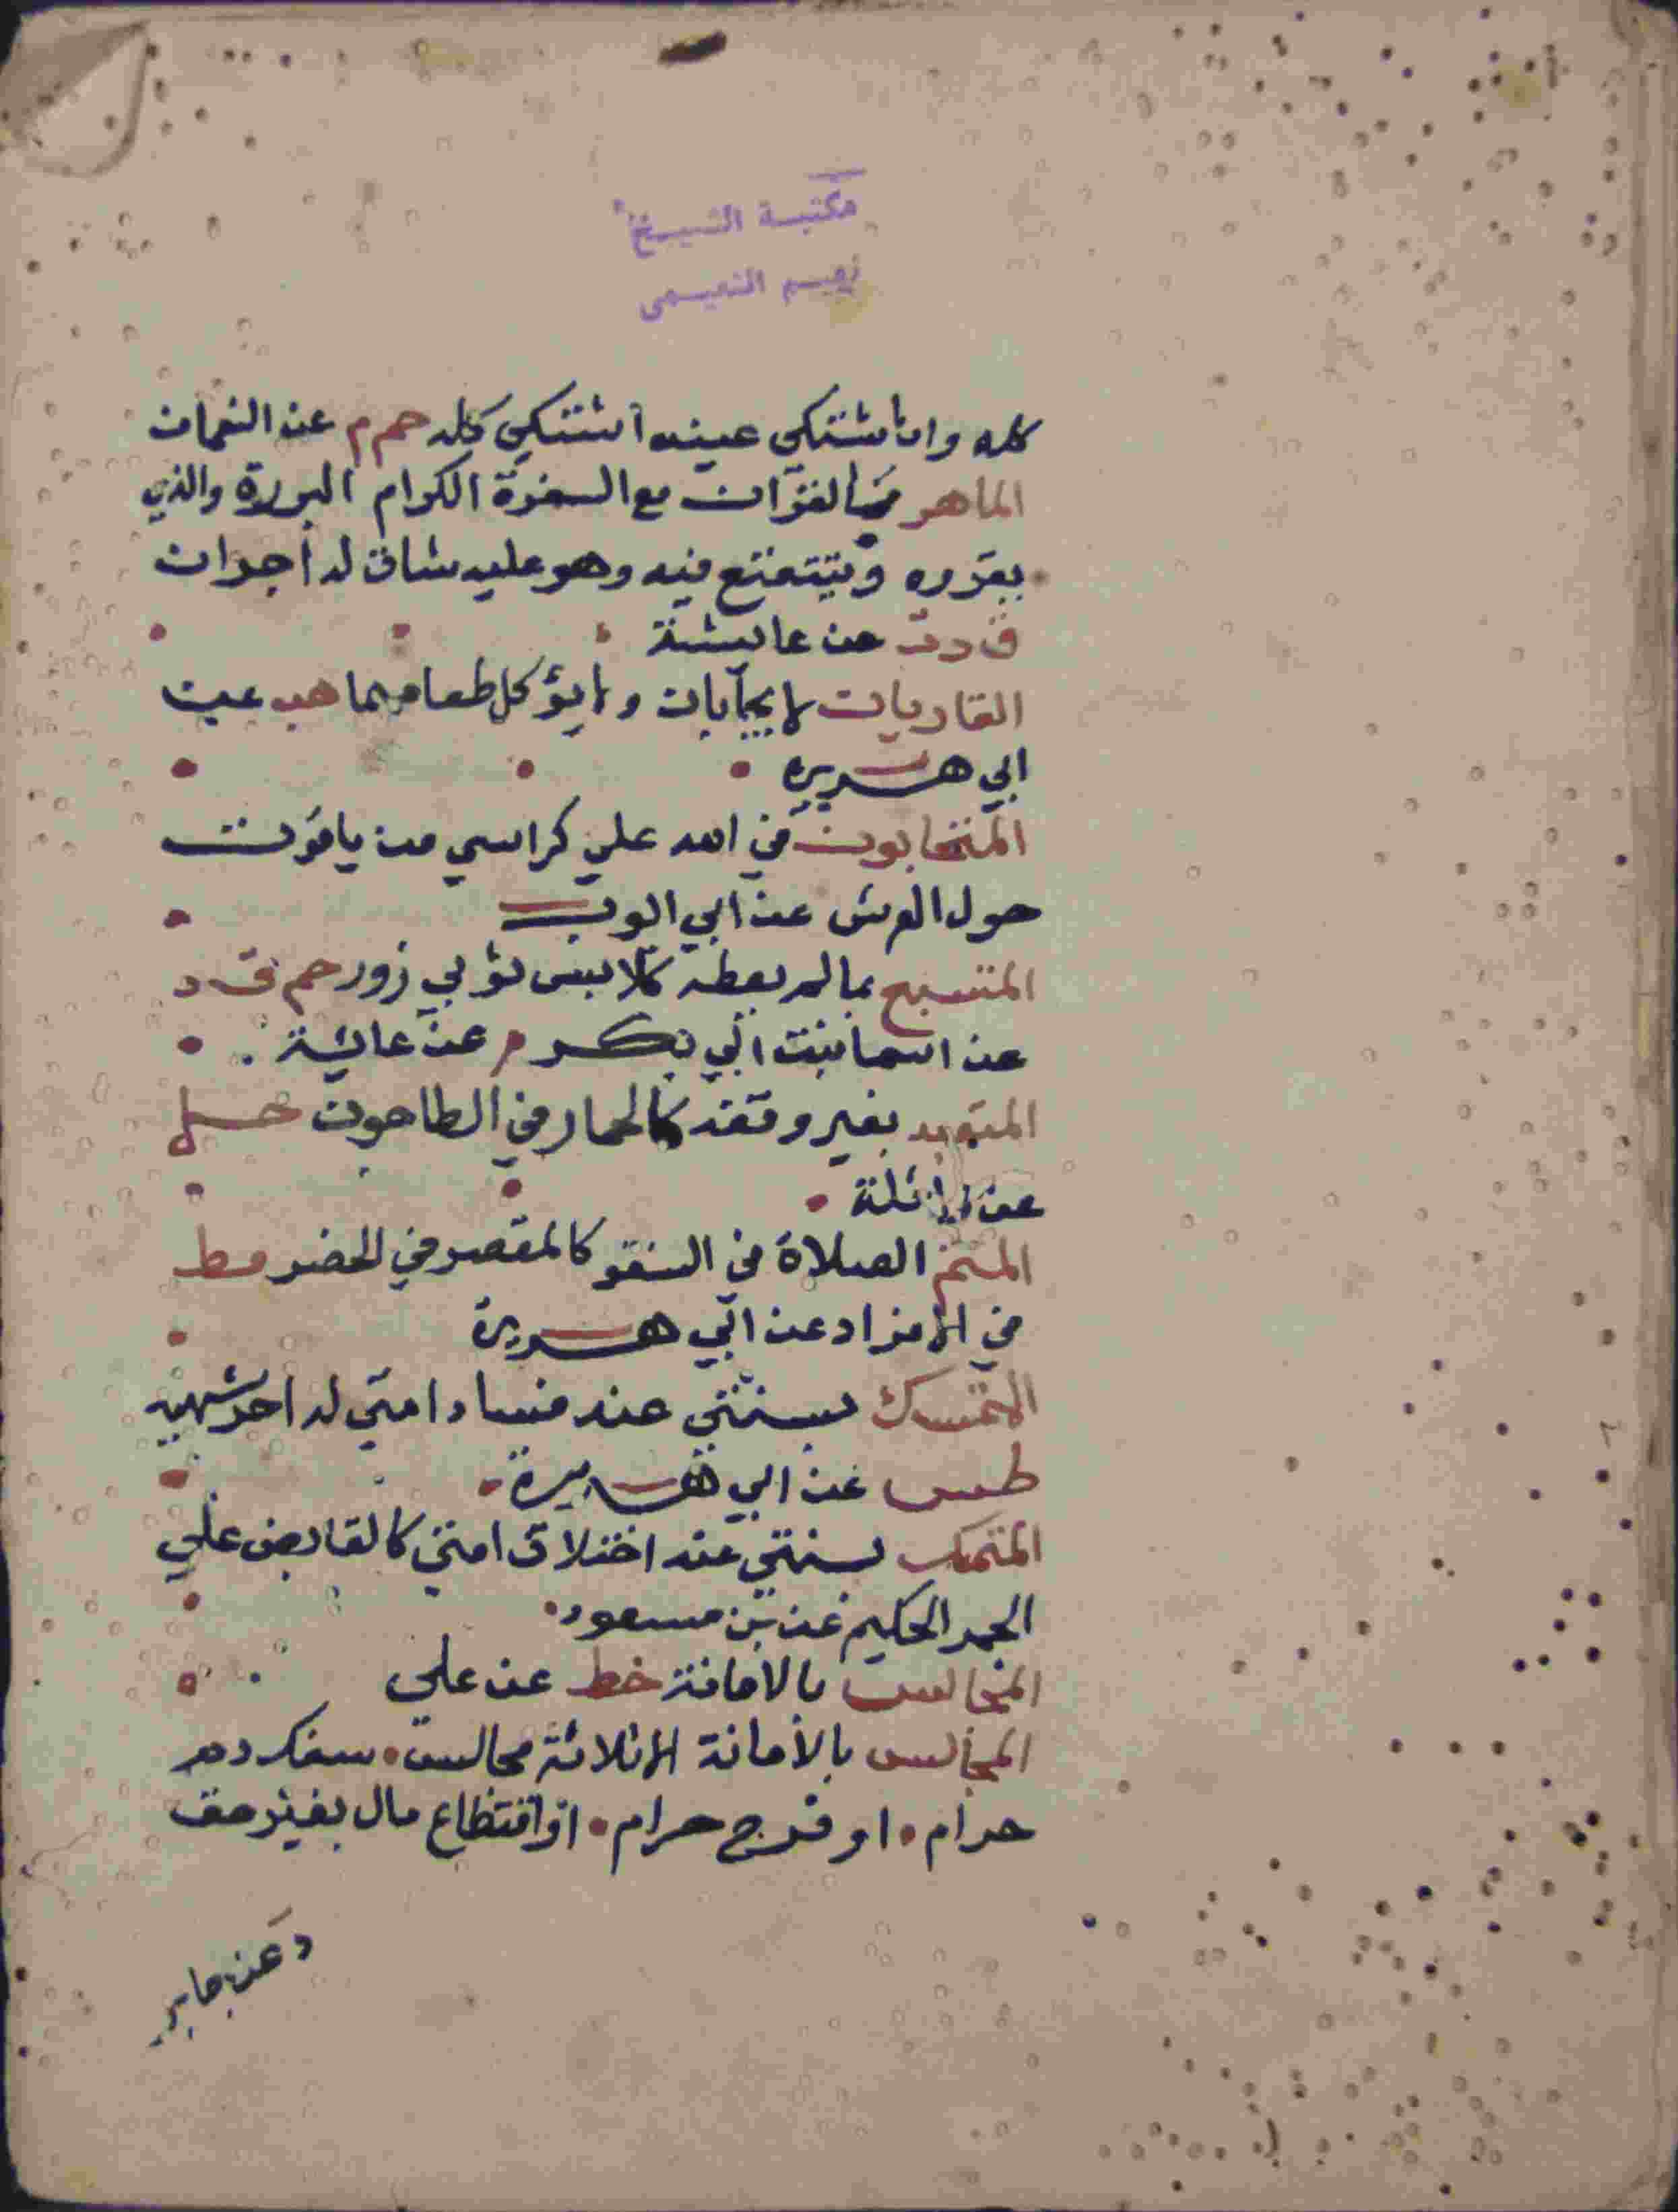 مكتبة الشيخ
نعيم النعيمي
كله وان اشتكي عينه اشتكي كله حم م عن النعمان
الماهر بالقران مع السفرة الكرام البررة والذي
يقروه ويتتعتع فيه وهو عليه شاق له اجران
ق د ت عن عايشة
المتباريان لا يجابان ولا يؤكل طعامهما هب عن
ابي هريره
المتحابون في الله علي كراسي من ياقوت
حول العرش عن ابي ايوب
المتشبع بمالم يعطه كلابس ثوبي زور حم ق د
عن اسما بنت ابي بكر م عن عائشة
المتعبد بغير فقه كالحمار في الطاحون حل
عن واثلة
المتم الصلاة في السفر كالمقصر في الحضر قط
في الافراد عن ابي هريرة
المتمسك بسنتي عند فساد امتي له اجر شهيد
طس عن ابي هريرة
المتمسك بسنتي عند اختلاف امتي كالقابض علي
الجمر الحكيم عن بن مسعود
المجالس بالامانة خط عن علي
المجالس بالأمانة الا ثلاثة مجالس سفك دم
حرام او فرج حرام او اقتطاع مال بغير حق
د عن جابر